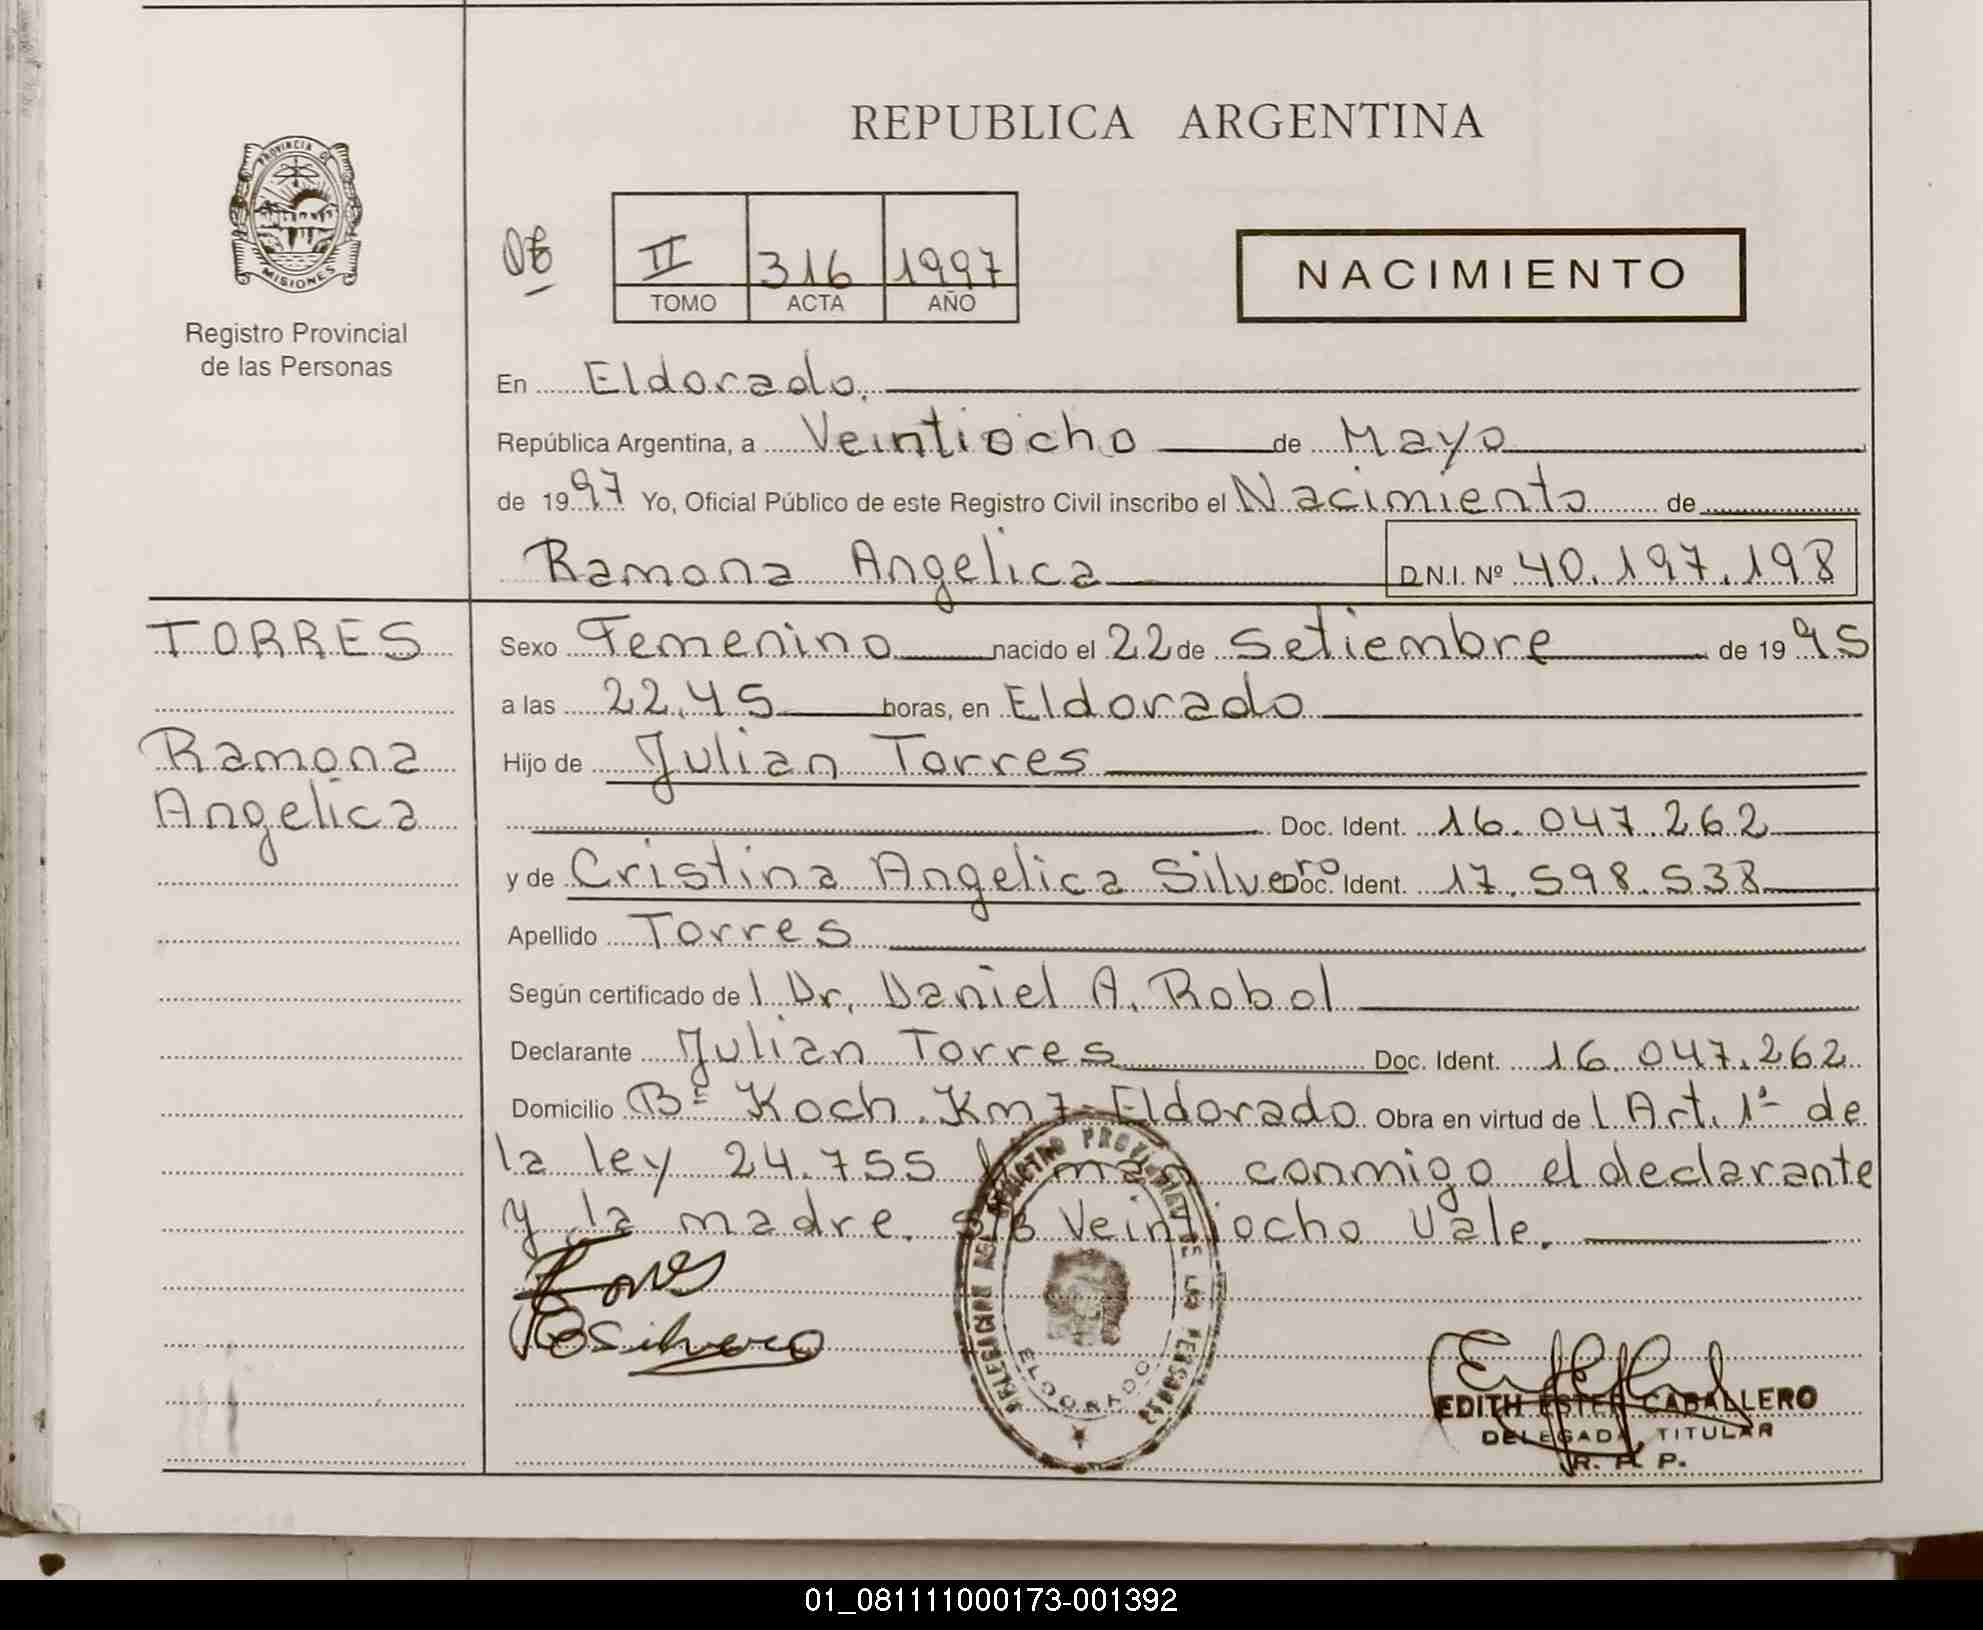 REPUBLICA ARGENTINA
PROVINCIA DE
MISIONES
Registro Provincial
de las Personas
II 316 1997
TOMO ACTA AÑO
NACIMIENTO
En Eldorado.
República Argentina, a Veintiocho de Mayo
de 1997 Yo, Oficial Público de este Registro Civil inscribo el Nacimiento de
Ramona Angelica D.N.I. Nº 40.197.198
TORRES
Ramona
Angelica
Sexo Femenino nacido el 22 de Setiembre de 1995
a las 22,45 horas, en Eldorado
Hijo de Julian Torres
Doc. Ident. 16.047.262
y de Cristina Angelica Silvero Doc. Ident. 17.598.538
Apellido Torres
Según certificado del Dr. Daniel A. Robol
Declarante Julian Torres Doc. Ident. 16.047.262
Domicilio Bº Koch. Km 7- Eldorado Obra en virtud del Art. 1º de
la ley 24.755 firman conmigo el declarante
y la madre. S/B Veintiocho Vale.
Torres
Silvero
DELEGACION DEL REGISTRO PROVINCIAL DE LAS PERSONAS
ELDORADO
EDITH ESTER CABALLERO
DELEGADA TITULAR
R. P. P.
01_081111000173-001392